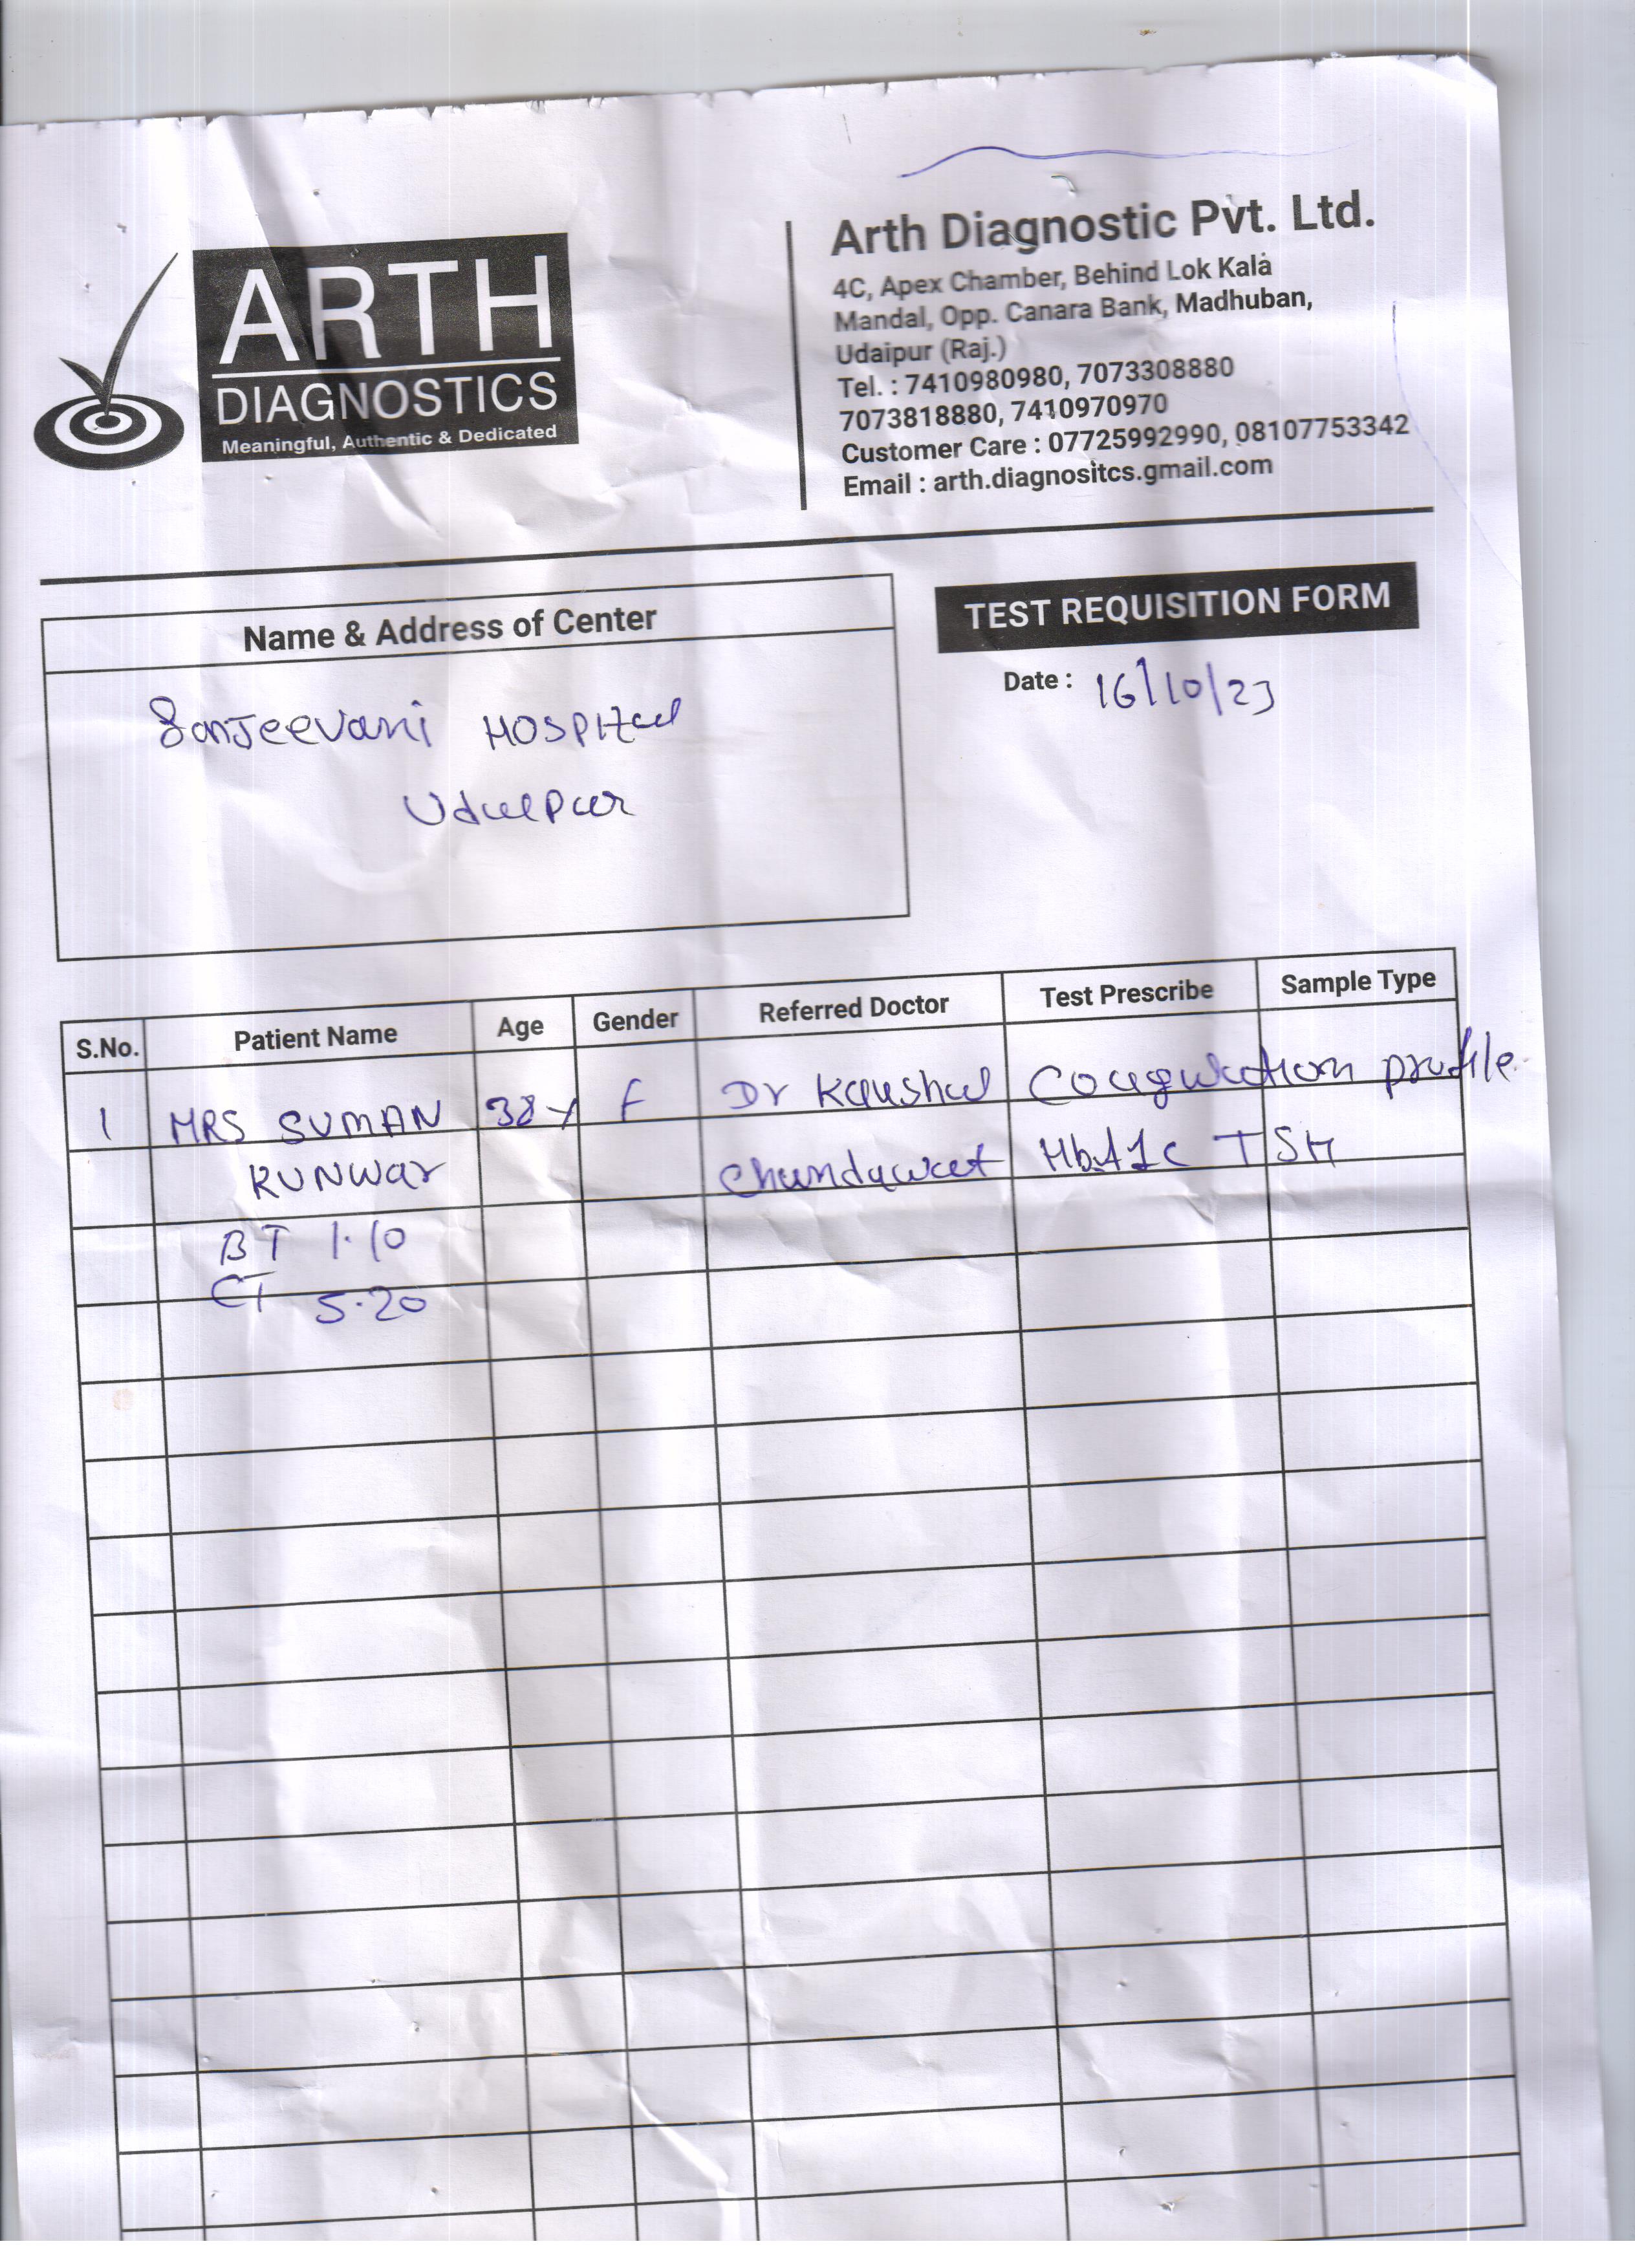 ARTH
DIAGNOSTICS
Meaningful, Authentic & Dedicated
Arth Diagnostic Pvt. Ltd.
4C, Apex Chamber, Behind Lok Kala
Mandal, Opp. Canara Bank, Madhuban,
Udaipur (Raj.)
Tel. : 7410980980, 7073308880
7073818880, 7410970970
Customer Care : 07725992990, 08107753342
Email : arth.diagnositcs.gmail.com
Name & Address of Center
Sanjeevani HOSPITal
Udaipur
TEST REQUISITION FORM
Date : 16/10/23
S.No. Patient Name Age Gender Referred Doctor Test Prescribe Sample Type
1 MRS SUMAN 38y F Dr Kaushal Coagulation profile
KUNWar Chundawat HbA1c TSH
BT 1.10
CT 5.20